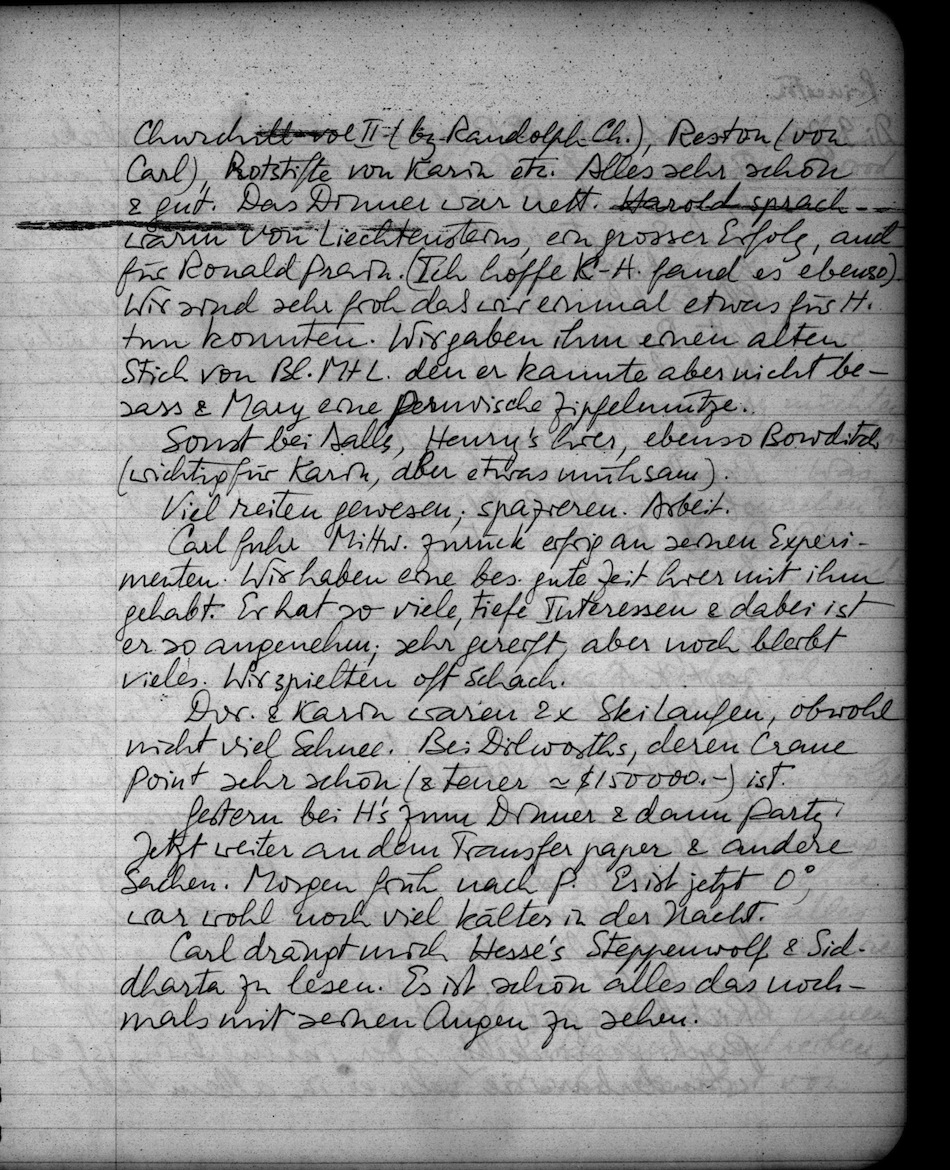 Churchill vol II (by Randolph Ch.), Reston (von
Carl), Rotstifte von Karin etc. Alles sehr schön
& gut. Das Dinner war nett. Harold sprach
warm von Liechtensteins, ein grosser Erfolg, auch
für Ronald Prain. (Ich hoffe K-H. fand es ebenso).
Wir sind sehr froh dass wir einmal etwas für H.
tun konnten. Wir gaben ihm einen alten
Stich von Bl. M+L. den er kannte aber nicht be-
sass & Mary eine Peruvische Zipfelmütze.
Sonst bei Aalls, Henry's hier, ebenso Bowditch
(wichtig für Karin, aber etwas mühsam).
Viel reiten gewesen; spazieren. Arbeit.
Carl fuhr Mittw. zurück eifrig an seinen Experi-
menten. Wir haben eine bes. gute Zeit hier mit ihm
gehabt. Er hat so viele, tiefe Interessen & dabei ist
er so angenehm; sehr gereift, aber noch bleibt
vieles. Wir spielten oft Schach.
Dor. & Karin waren 2x Skilaufen, obwohl
nicht viel Schnee. Bei Dilworths, deren Crane
Point sehr schön (& teuer ≈ $150000.-) ist.
Gestern bei H's zum Dinner & dann Party.
Jetzt weiter an dem Transfer paper & andere
Sachen. Morgen früh nach P. Es ist jetzt 0°,
war wohl noch viel kälter in der Nacht.
Carl drängt mich Hesse's Steppenwolf & Sid-
dharta zu lesen. Es ist schön alles das noch-
mals mit seinen Augen zu sehen.